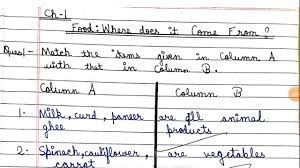 Ch-1
Food: Where does it Come From?
Ques1- Match the items given in Column A
with that in Column B.
Column A Column B
1. Milk, curd, paneer are all animal
ghee products
2. Spinach, cauliflower, are vegetables
carrot